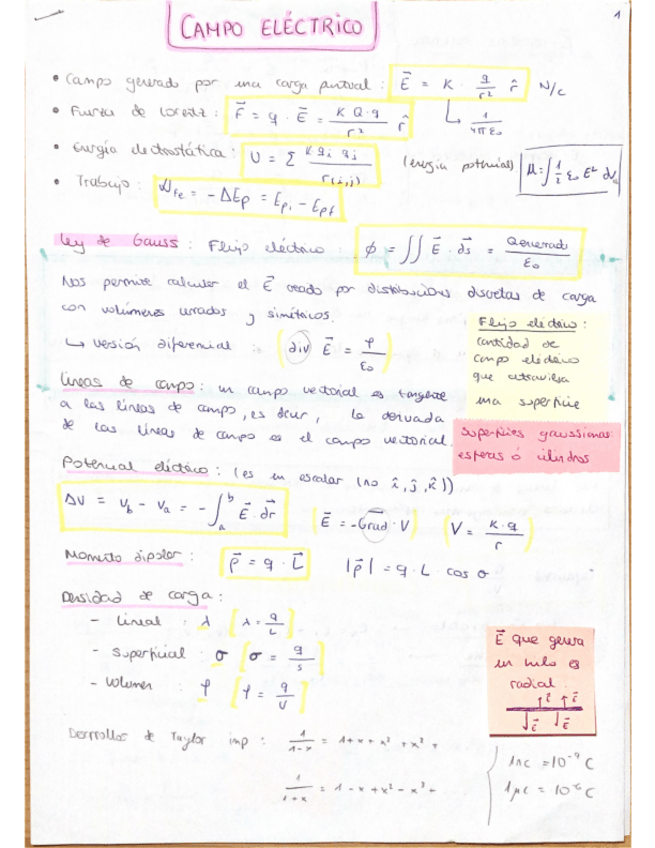 1
CAMPO ELÉCTRICO
• Campo generado por una carga puntual : E⃗ = K · q/r² r̂ N/C
↳ 1/4πε₀
• Fuerza de Lorentz : F⃗ = q · E⃗ = K Q·q / r² r̂
• Energía electrostática : U = Σ K qi qj / r(i,j) (energía potencial) μ = ∫ 1/2 ε₀ E² dV
• Trabajo : W_Fe = - ΔEp = Epi - Epf
Ley de Gauss : Flujo eléctrico : ϕ = ∬ E⃗ · ds⃗ = Qencerrada / ε₀
Nos permite calcular el E⃗ creado por distribuciones discretas de carga
con volúmenes cerrados y simétricos.
↳ versión diferencial : (div E⃗ = ρ/ε₀)
Flujo eléctrico :
cantidad de
campo eléctrico
que atraviesa
una superficie
Líneas de campo : un campo vectorial es tangente
a las líneas de campo, es decir, la derivada
de las líneas de campo es el campo vectorial.
Superficies gaussianas:
esferas ó cilindros
Potencial eléctrico : (es un escalar (no î, ĵ, k̂))
ΔV = Vb - Va = - ∫ₐᵇ E⃗ · dr⃗ (E⃗ = -Grad · V) (V = K·q / r)
Momento dipolar : p⃗ = q · L⃗ |p⃗| = q · L · cos σ
Densidad de carga :
- Lineal : λ [λ = q/L]
- Superficial : σ [σ = q/s]
- Volumen : φ [φ = q/V]
E⃗ que genera
un hilo es
radial
E⃗ E⃗
E⃗ E⃗
Desarrollar de Taylor imp : 1/1-x = 1 + x + x² + x³ +
1/1+x = 1 - x + x² - x³ +
1nc = 10⁻⁹ C
1μc = 10⁻⁶ C